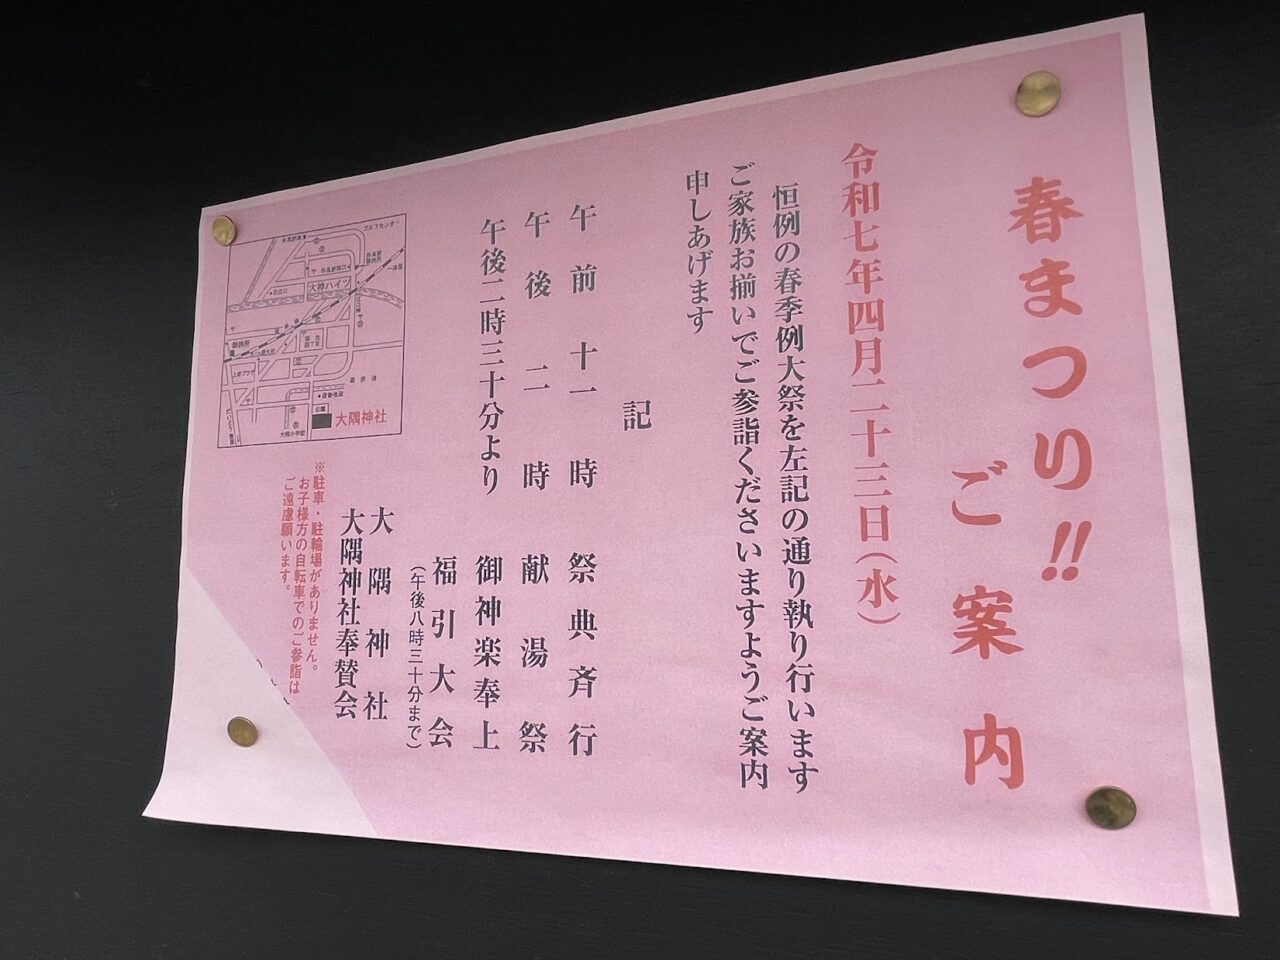 春まつり!!
ご案内
令和七年四月二十三日(水)
恒例の春季例大祭を左記の通り執り行います
ご家族お揃いでご参詣くださいますようご案内
申しあげます
記
午前十一時 祭典斉行
午後二時 献湯祭
午後二時三十分より 御神楽奉上
福引大会
(午後八時三十分まで)
大隅神社
大隅神社奉賛会
ゴルフセンター
大神ハイツ
御旅所
上新プラザ
公園
大隅神社
大隅小学校
※駐車・駐輪場がありません。
お子様方の自転車でのご参詣は
ご遠慮願います。